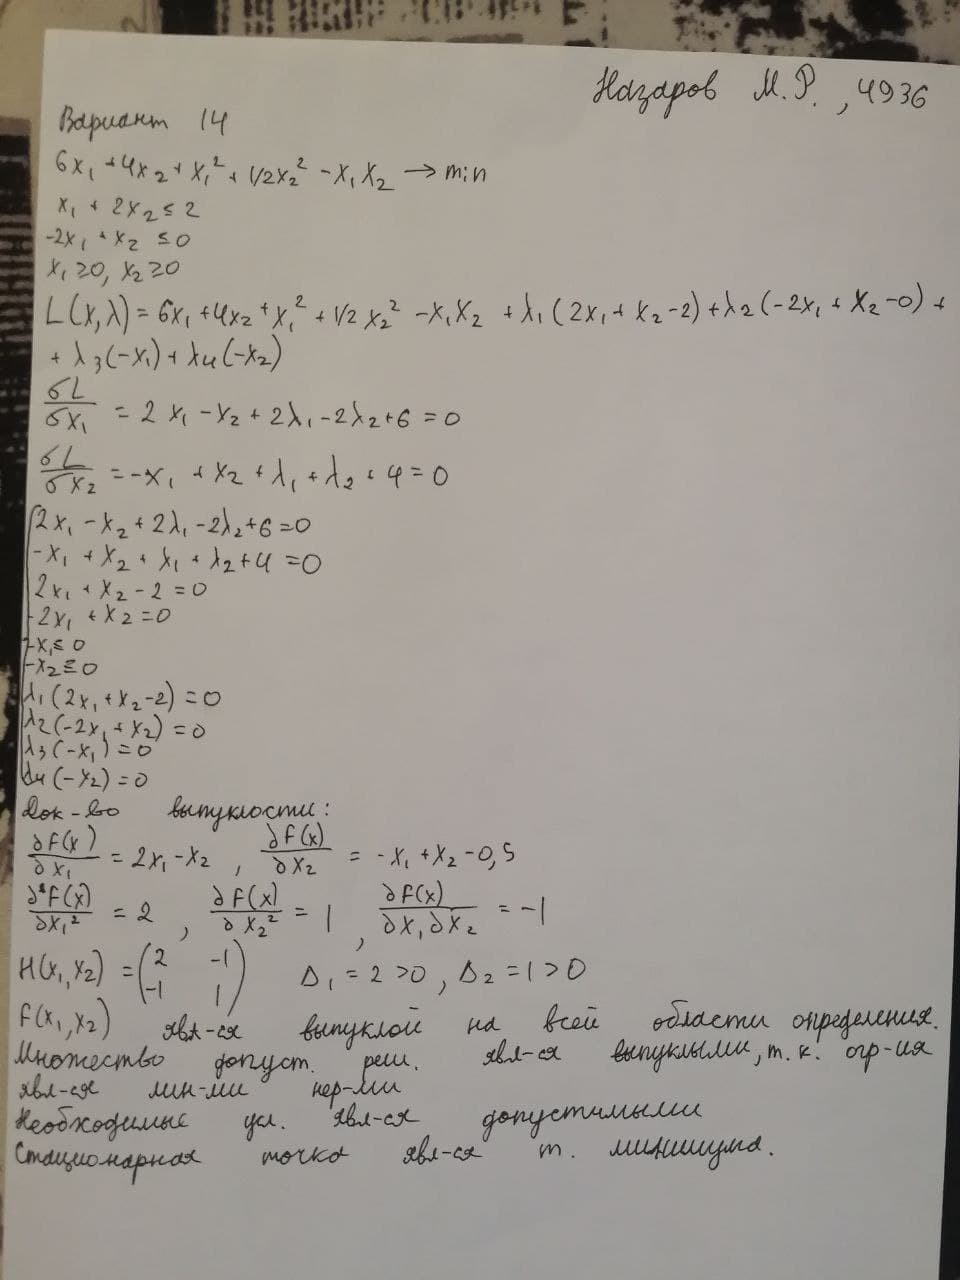 Назаров М.Р., 4936
Вариант 14
6x₁ + 4x₂ + x₁² + 1/2x₂² - x₁x₂ → min
x₁ + 2x₂ ≤ 2
-2x₁ + x₂ ≤ 0
x₁ ≥ 0, x₂ ≥ 0
L(x,λ) = 6x₁ + 4x₂ + x₁² + 1/2 x₂² - x₁x₂ + λ₁(2x₁ + x₂ - 2) + λ₂(-2x₁ + x₂ - 0) +
+ λ₃(-x₁) + λ₄(-x₂)
бL/бx₁ = 2x₁ - x₂ + 2λ₁ - 2λ₂ + 6 = 0
бL/бx₂ = -x₁ + x₂ + λ₁ + λ₂ + 4 = 0
2x₁ - x₂ + 2λ₁ - 2λ₂ + 6 = 0
-x₁ + x₂ + λ₁ + λ₂ + 4 = 0
2x₁ + x₂ - 2 = 0
-2x₁ + x₂ = 0
-x₁ ≤ 0
-x₂ ≤ 0
λ₁(2x₁ + x₂ - 2) = 0
λ₂(-2x₁ + x₂) = 0
λ₃(-x₁) = 0
λ₄(-x₂) = 0
Док-во выпуклости:
∂f(x)/∂x₁ = 2x₁ - x₂, ∂f(x)/∂x₂ = -x₁ + x₂ - 0,5
∂²f(x)/∂x₁² = 2, ∂f(x)/∂x₂² = 1, ∂f(x)/∂x₁∂x₂ = -1
H(x₁,x₂) = (2 -1 / -1 1) Δ₁ = 2 > 0, Δ₂ = 1 > 0
f(x₁,x₂) явл-ся выпуклой на всей области определения.
Множество допуст. реш. явл-ся выпуклыми, т.к. огр-ия
явл-ся лин-ми нер-ми
Необходимые усл. явл-ся допустимыми
Стационарная точка явл-ся т. минимума.